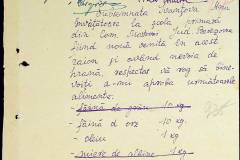 Subsemnata
învățătoare la școla primară
din Com. Jud.
fiind nouă venită în acest
raion și având nevoie de
hrană, respectos vă rog să bine-
voiți a-mi aproba următoarele
alimente:
făină de grâu 10 kg.
făină d orz 10 kg.
oleiu 1 kg
miere de albine 1 kg